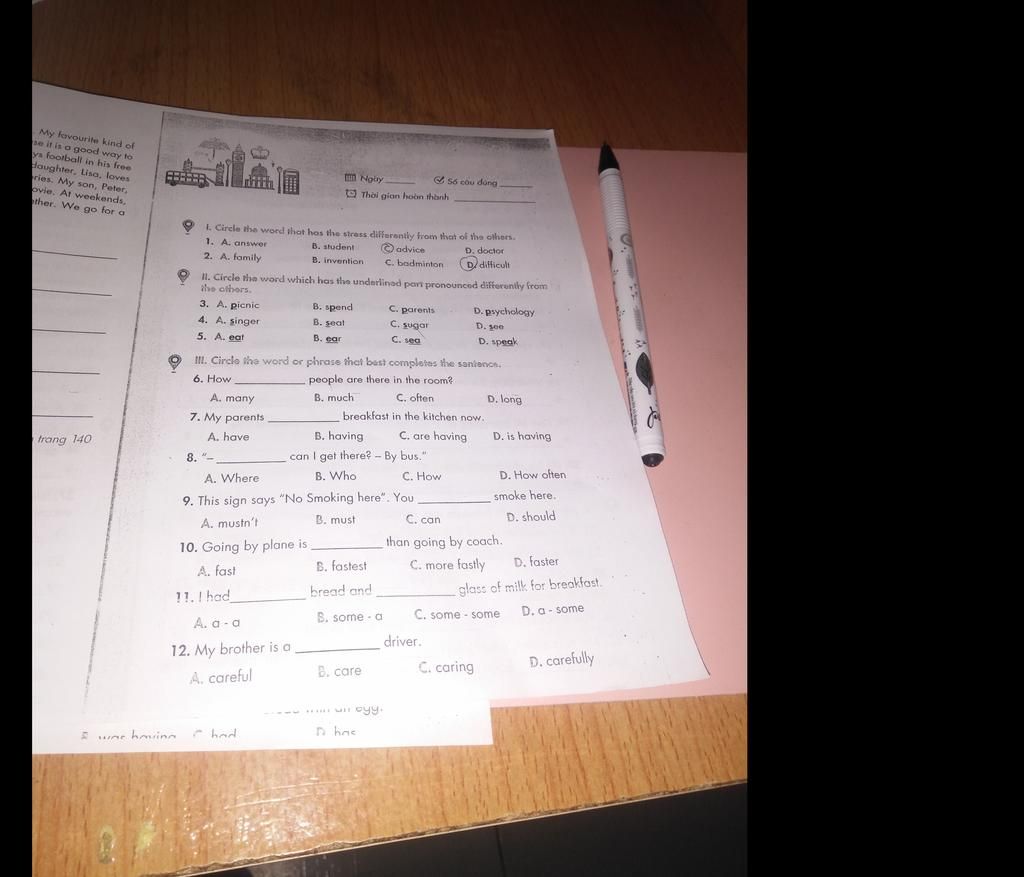 . My favourite kind of
se it is a good way to
ys football in his free
daughter, Lisa, loves
ries. My son, Peter,
ovie. At weekends,
ther. We go for a
trang 140
Ngày ______ Số câu đúng ______
Thời gian hoàn thành ______
I. Circle the word that has the stress differently from that of the others.
1. A. answer B. student C. advice D. doctor
2. A. family B. invention C. badminton D. difficult
II. Circle the word which has the underlined part pronounced differently from
the others.
3. A. picnic B. spend C. parents D. psychology
4. A. singer B. seat C. sugar D. see
5. A. eat B. ear C. sea D. speak
III. Circle the word or phrase that best completes the sentence.
6. How ______ people are there in the room?
A. many B. much C. often D. long
7. My parents ______ breakfast in the kitchen now.
A. have B. having C. are having D. is having
8. “– ______ can I get there? – By bus.”
A. Where B. Who C. How D. How often
9. This sign says “No Smoking here”. You ______ smoke here.
A. mustn’t B. must C. can D. should
10. Going by plane is ______ than going by coach.
A. fast B. fastest C. more fastly D. faster
11. I had ______ bread and ______ glass of milk for breakfast.
A. a - a B. some - a C. some - some D. a - some
12. My brother is a ______ driver.
A. careful B. care C. caring D. carefully
an egg.
was having C had D has